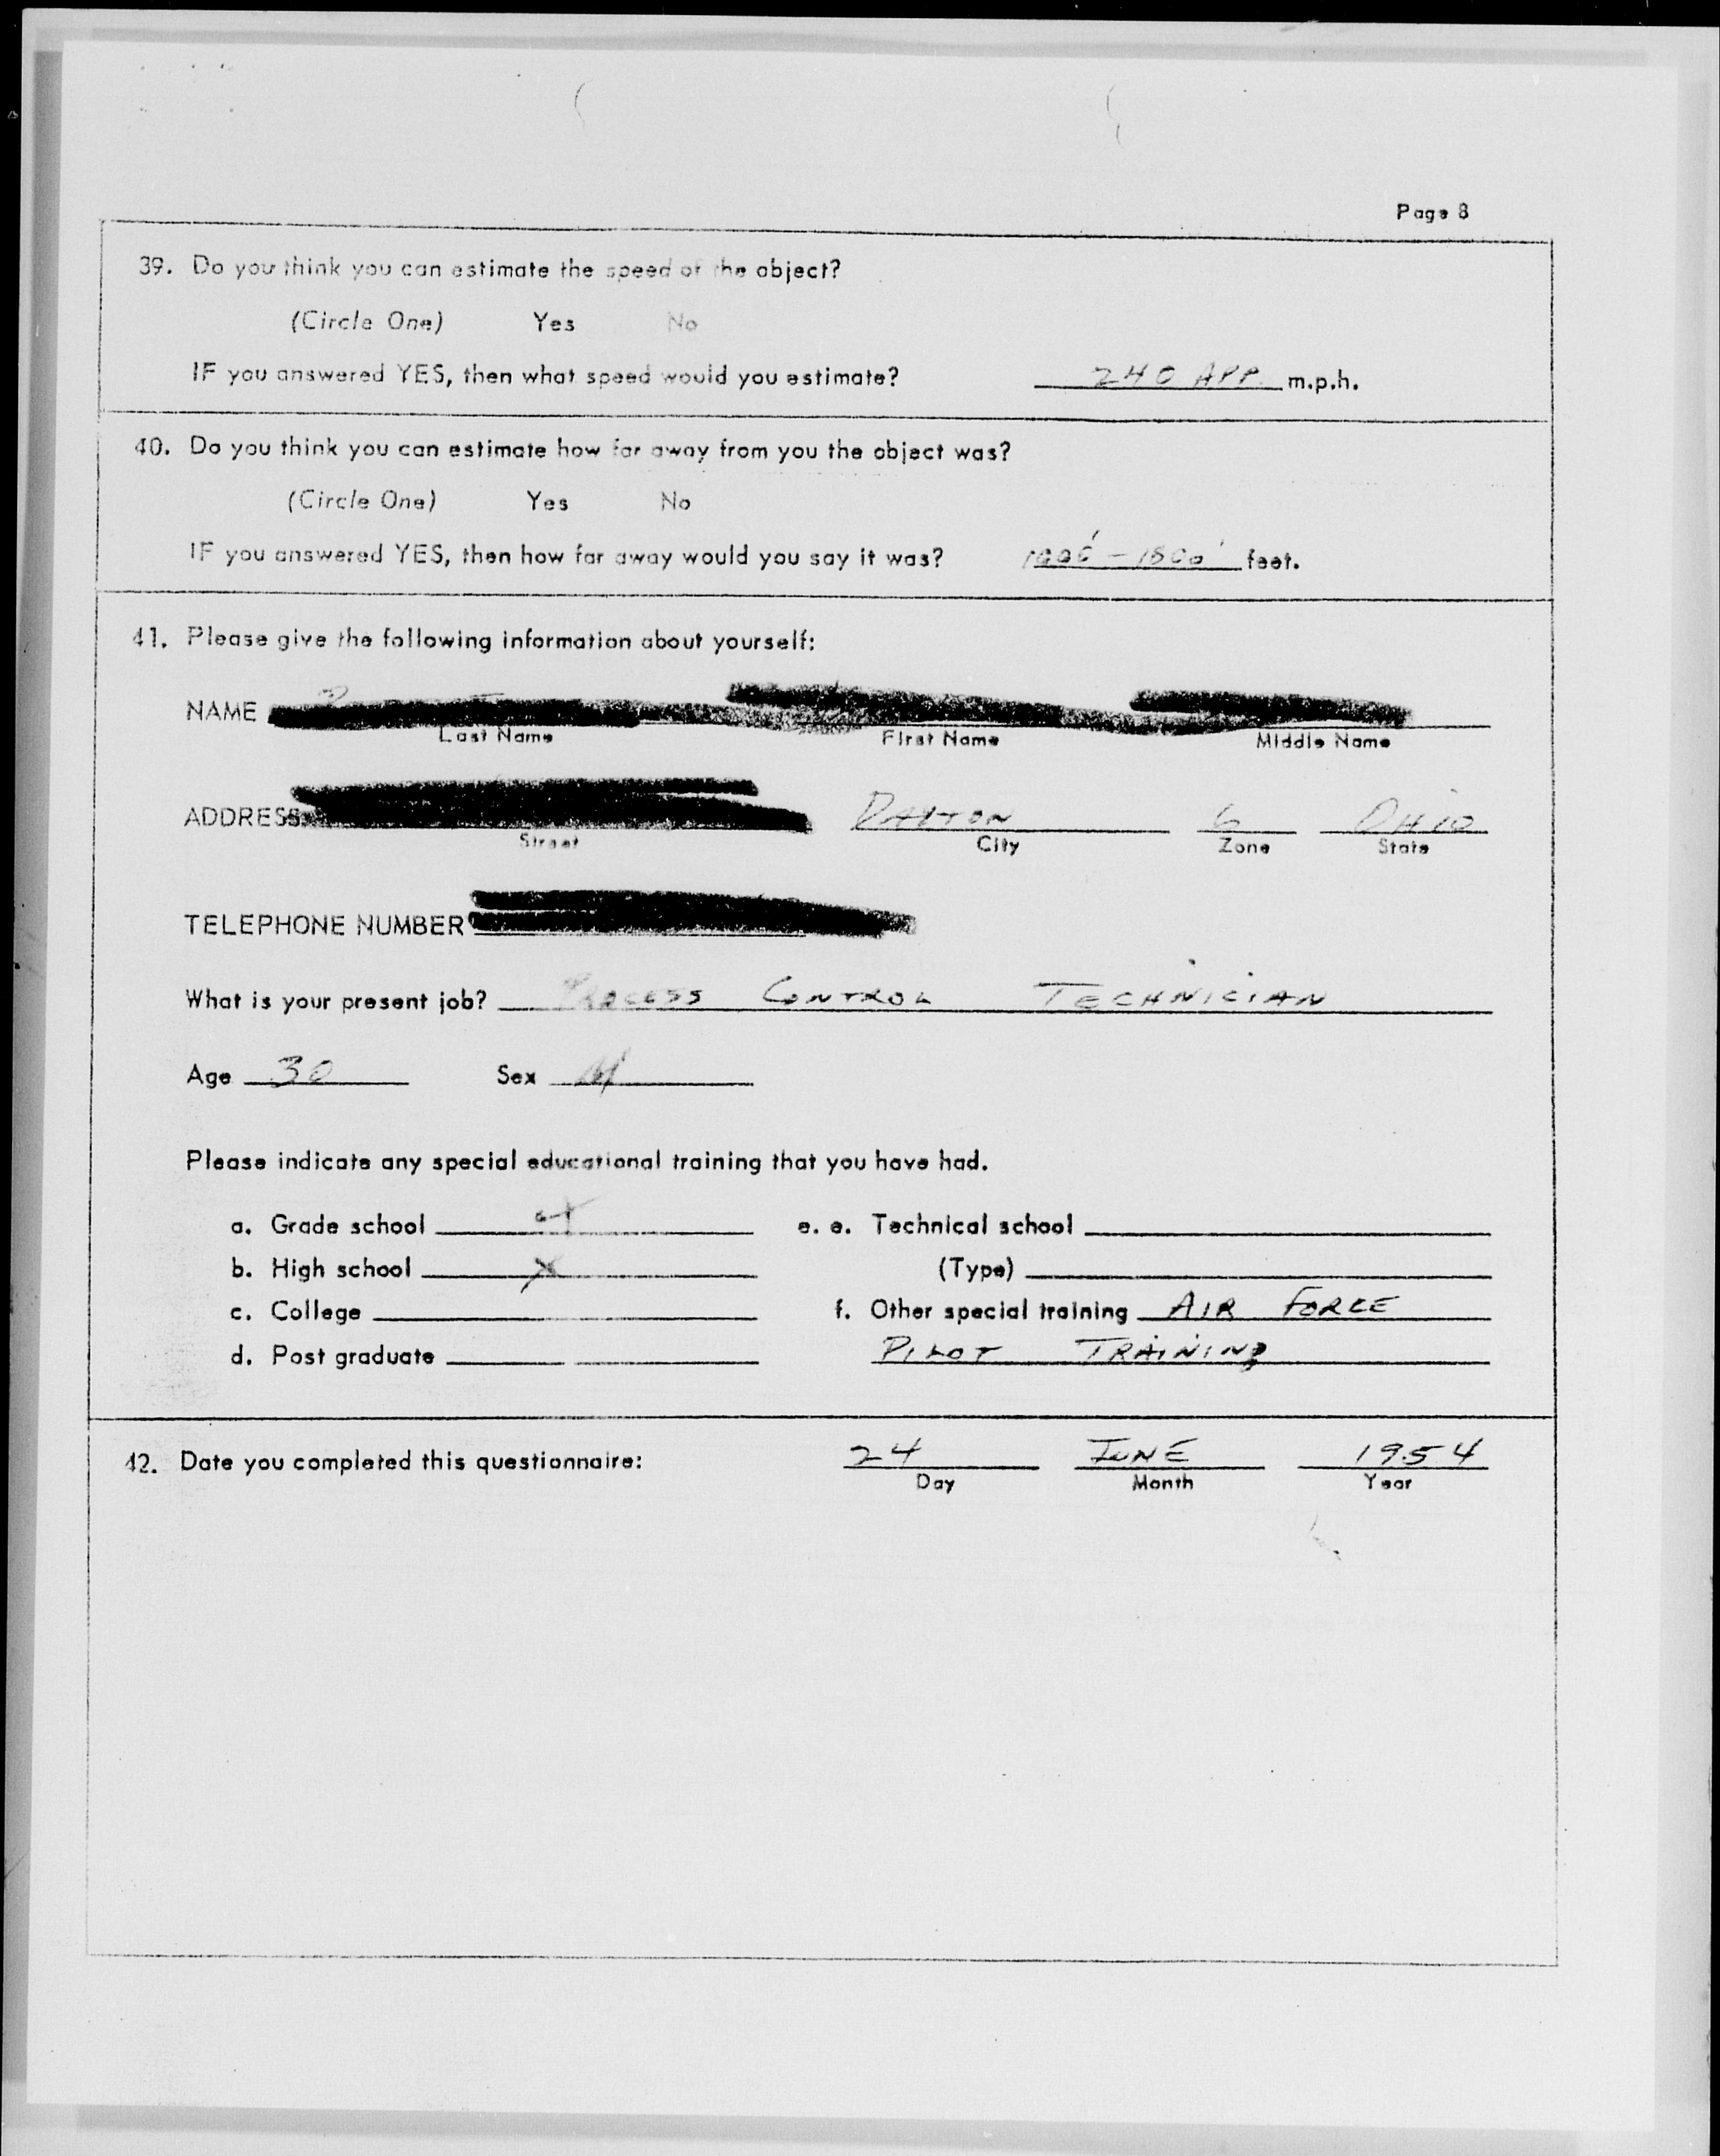 Page 8
39. Do you think you can estimate the speed of the object?
(Circle One) Yes No
IF you answered YES, then what speed would you estimate? 240 APP. m.p.h.
40. Do you think you can estimate how far away from you the object was?
(Circle One) Yes No
IF you answered YES, then how far away would you say it was? 1000' - 1500' feet.
41. Please give the following information about yourself:
NAME
Last Name First Name Middle Name
ADDRESS DAYTON 6 OHIO
Street City Zone State
TELEPHONE NUMBER
What is your present job? PROCESS CONTROL TECHNICIAN
Age 30 Sex M
Please indicate any special educational training that you have had.
a. Grade school X e. e. Technical school
b. High school X (Type)
c. College f. Other special training AIR FORCE
d. Post graduate PILOT TRAINING
42. Date you completed this questionnaire: 24 JUNE 1954
Day Month Year